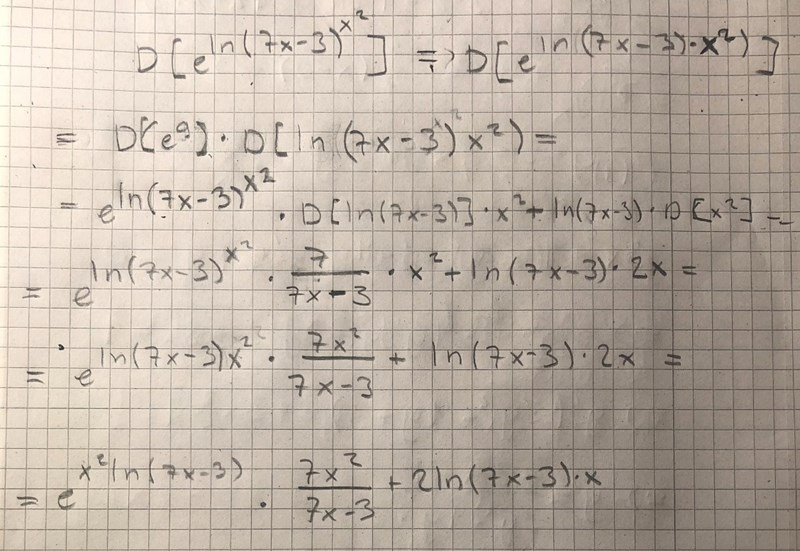 D[e^{ln(7x-3)^{x^2}}] => D[e^{ln(7x-3)·x^2)}]
= D[e^g]·D[ln(7x-3)x^2) =
= e^{ln(7x-3)^{x^2}} · D[ln(7x-3)]·x^2+ln(7x-3)·D[x^2] =
= e^{ln(7x-3)^{x^2}} · \frac{7}{7x-3} · x^2+ln(7x-3)·2x =
= e^{ln(7x-3)x^2} · \frac{7x^2}{7x-3} + ln(7x-3)·2x =
= e^{x^2ln(7x-3)} · \frac{7x^2}{7x-3} + 2ln(7x-3)·x